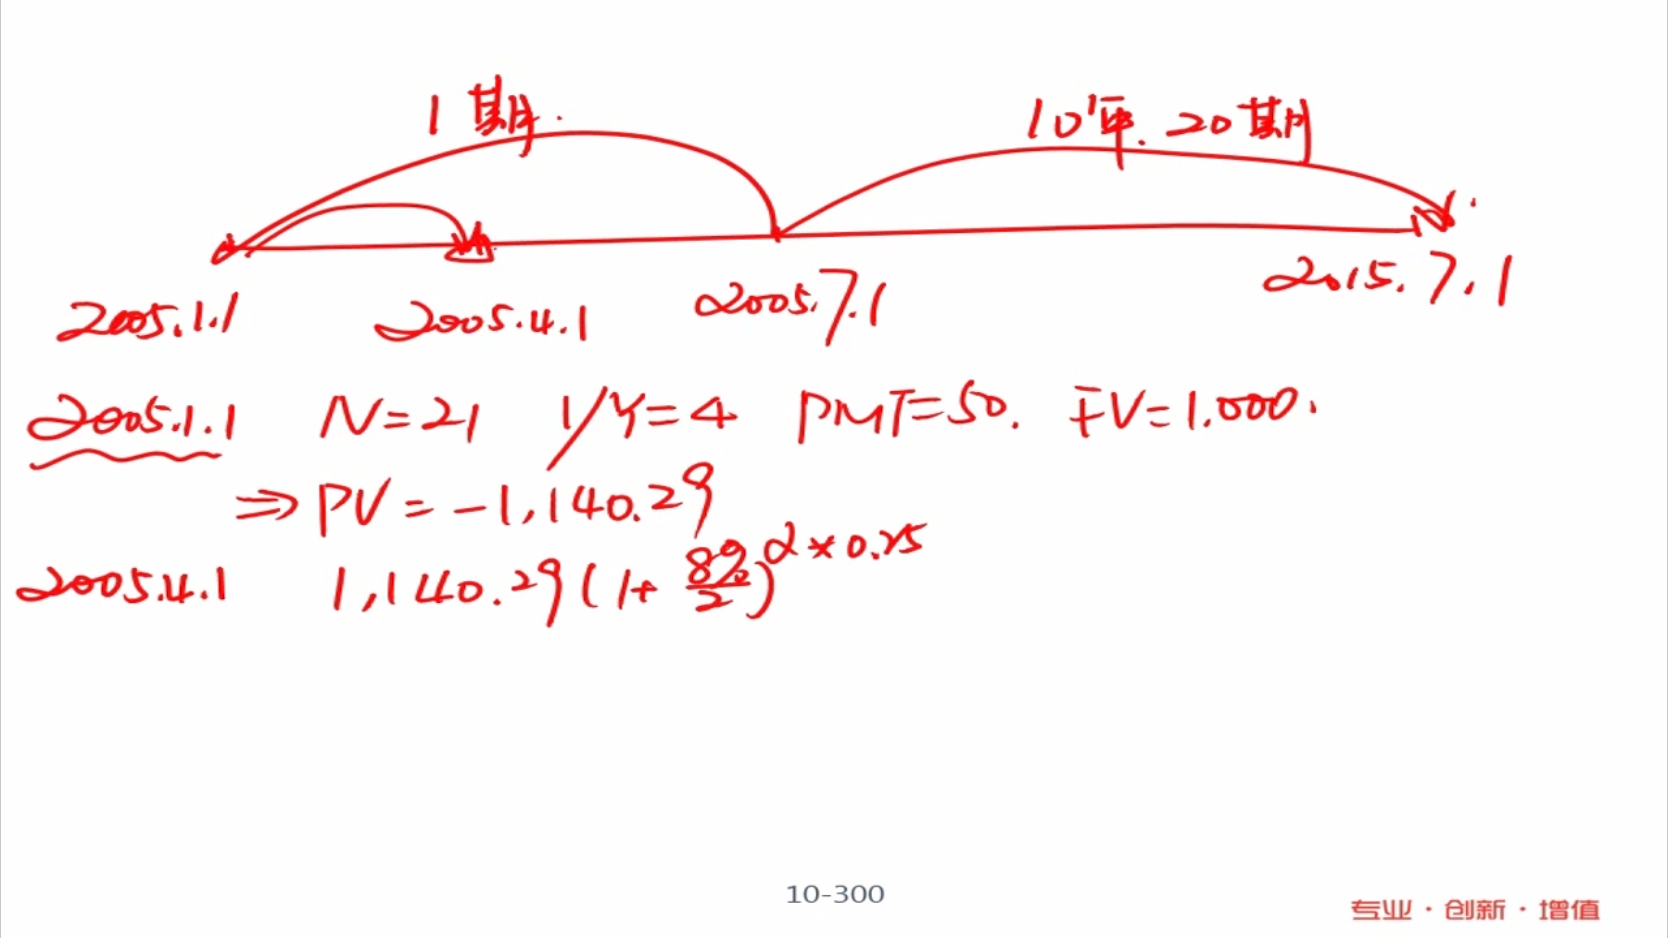 1期.
10年.20期
2005.1.1 2005.4.1 2005.7.1 2015.7.1
2005.1.1 N=21 I/Y=4 PMT=50. FV=1.000.
⇒ PV=-1,140.29
2005.4.1 1,140.29(1+8%/2)^2×0.25
10-300
专业·创新·增值